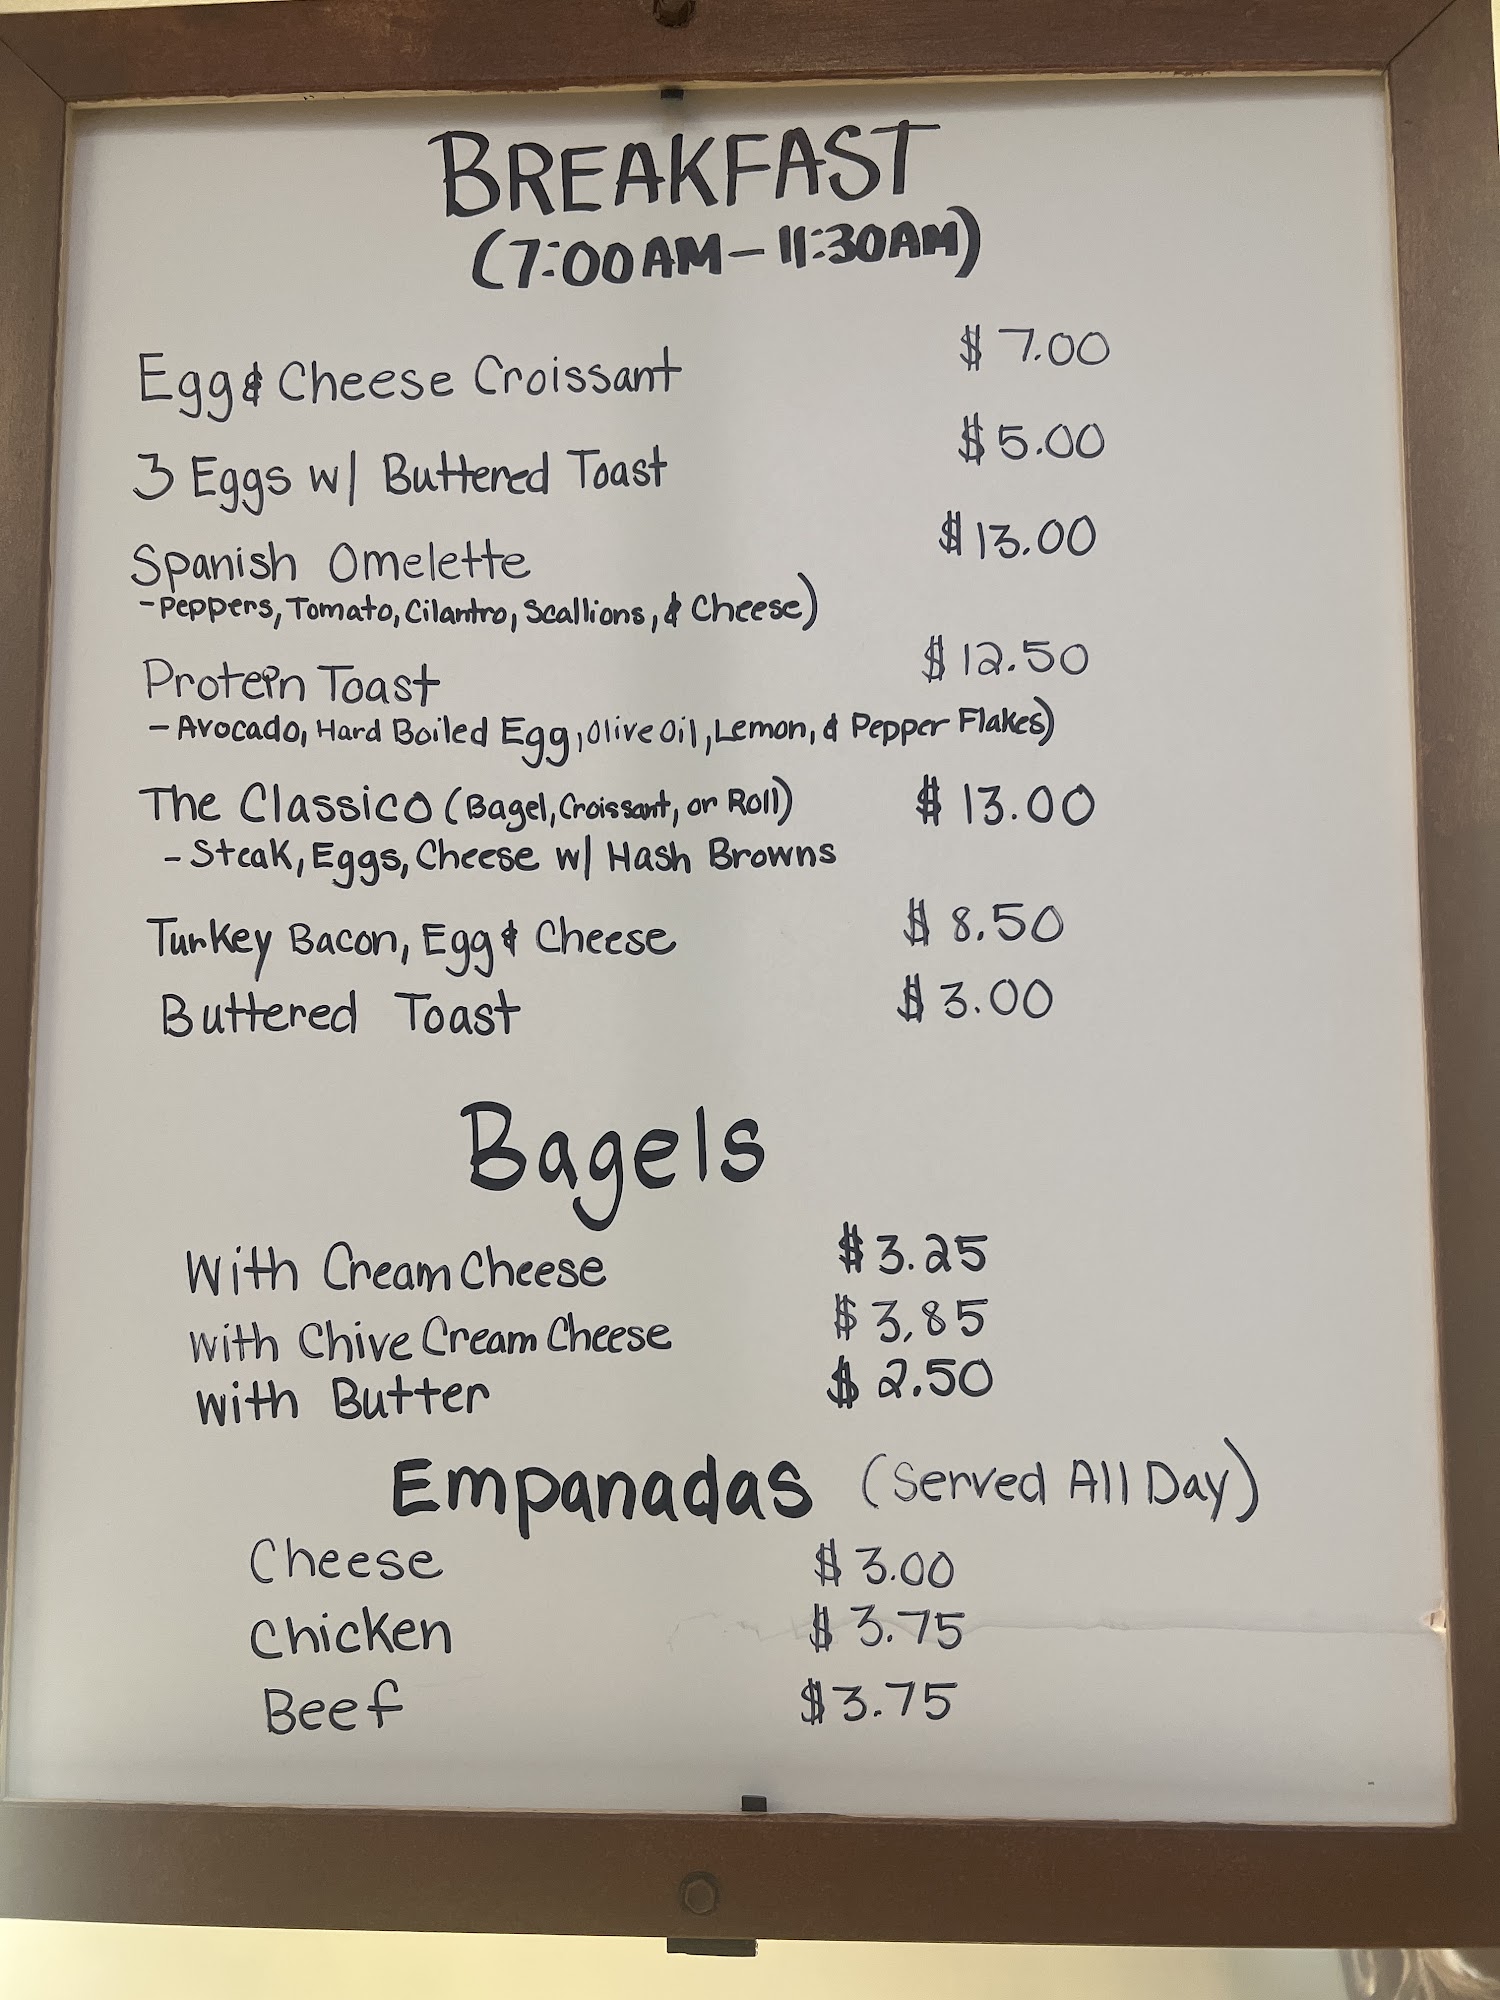 BREAKFAST
(7:00AM-11:30AM)
Egg & Cheese Croissant $7.00
3 Eggs w/ Buttered Toast $5.00
Spanish Omelette $13.00
-Peppers, Tomato, Cilantro, Scallions, & Cheese)
Protein Toast $12.50
-Avocado, Hard Boiled Egg, Olive Oil, Lemon, & Pepper Flakes)
The Classico (Bagel, Croissant, or Roll) $13.00
-Steak, Eggs, Cheese w/ Hash Browns
Turkey Bacon, Egg & Cheese $8.50
Buttered Toast $3.00
Bagels
With Cream Cheese $3.25
With Chive Cream Cheese $3.85
With Butter $2.50
Empanadas (Served All Day)
Cheese $3.00
Chicken $3.75
Beef $3.75